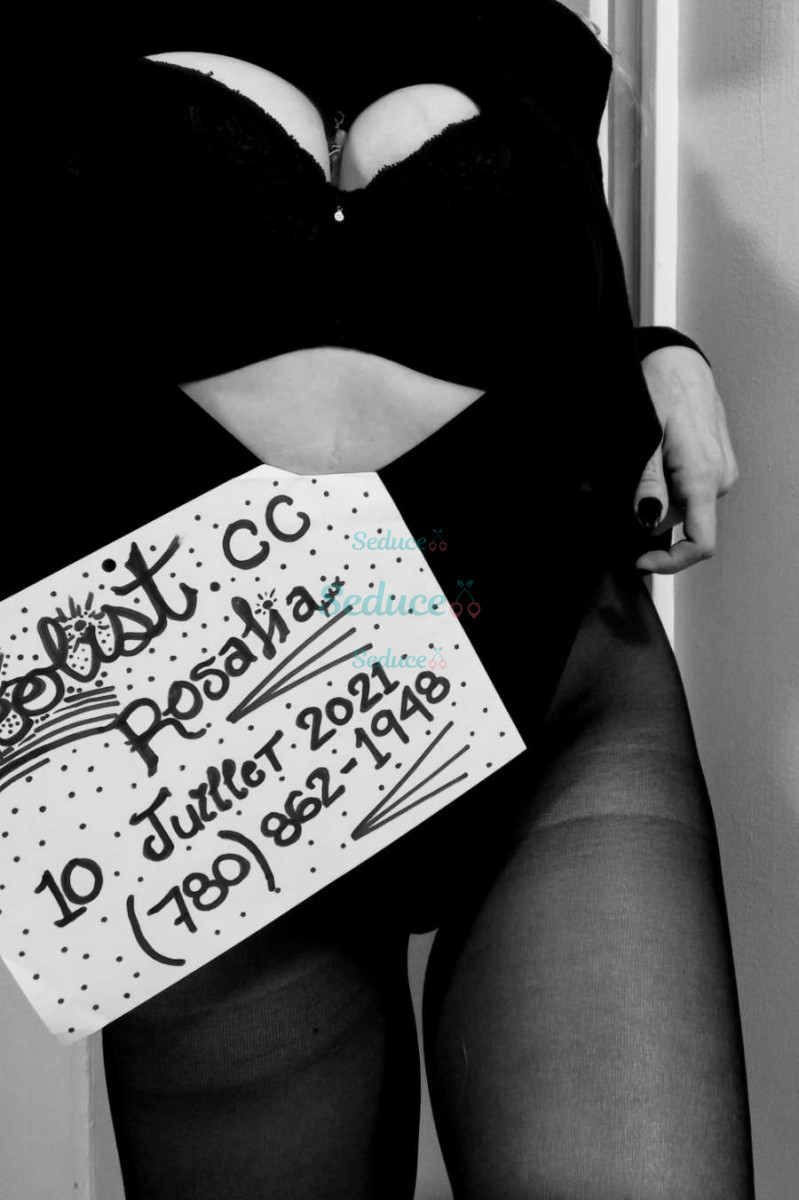 list CC
Rosalia xx
10 Juillet 2021
(780) 862-1948
Seduce
Seduce
Seduce